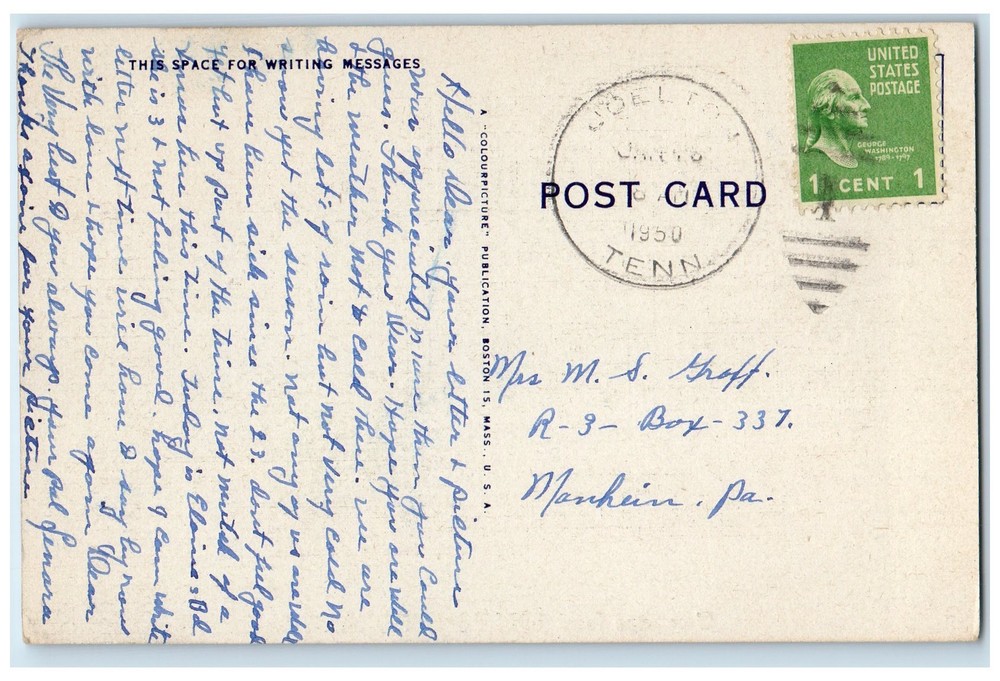 THIS SPACE FOR WRITING MESSAGES
Hello Dear. Your letter & picture
was appreciated more then you could
Guess. Thank you Dear. Hope you are well
& the weather not to cold there. we are
having lot's of rain but not very cold No
snow yet the season. Not any of us are well
I have been sick since the 23. dont feel good
but up part of the time. Not much of a
Xmas for this time. Today is Elaine's Bd
she is 3 & not feeling good. hope I can write
letter next time will have to say by now
with love & hope you come again Dear
The Very best to you always Your Pal Lenara
Thanks again for your picture
A "COLOURPICTURE" PUBLICATION, BOSTON 15, MASS., U. S. A.
POST CARD
JOELTON
JAN
1950
TENN.
UNITED
STATES
POSTAGE
GEORGE
WASHINGTON
1789-1797
1 CENT 1
Mrs M. S. Graff.
R-3- Box-337.
Manheim, Pa.